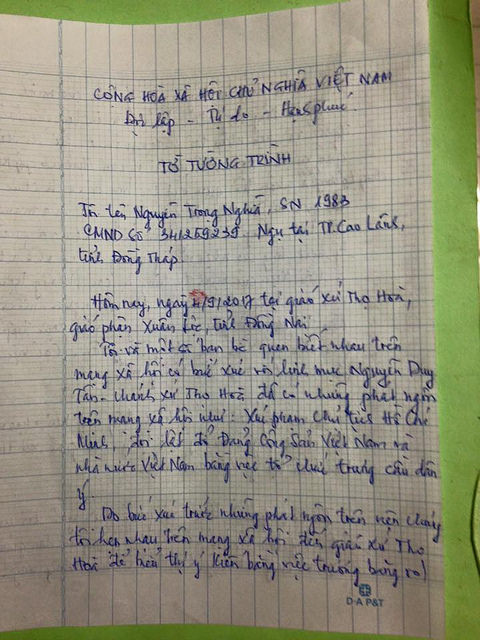 CÔNG HOÀ XÃ HỘI CHỦ NGHĨA VIỆT NAM
Độc lập - Tự do - Hạnh phúc
TỜ TƯỜNG TRÌNH
Tôi tên Nguyễn Trọng Nghĩa, SN 1983
CMND số 341259239 Ngụ tại TP. Cao Lãnh,
tỉnh Đồng Tháp.
Hôm nay, ngày 4/9/2017 tại giáo xứ Thọ Hoà,
giáo phận Xuân Lộc, tỉnh Đồng Nai
Tôi và một số bạn bè quen biết nhau trên
mạng xã hội có bức xúc với linh mục Nguyễn Duy
Tân - chánh xứ Thọ Hoà đã có những phát ngôn
trên mạng xã hội như: Xúc phạm Chủ tịch Hồ Chí
Minh, đòi lật đổ Đảng Cộng Sản Việt Nam và
nhà nước Việt Nam bằng việc tổ chức trưng cầu dân
ý
Do bức xúc trước những phát ngôn trên nên chúng
tôi hẹn nhau trên mạng xã hội đến giáo xứ Thọ
Hoà để biểu thị ý kiến bằng việc trương băng rol
D·A P&T